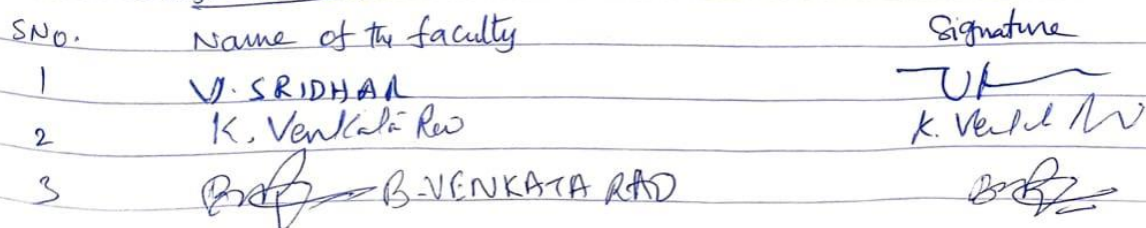 SNo. Name of the faculty Signature
1 V. SRIDHAR
2 K. Venkata Rao K. Venkat
3 B-VENKATA RAO